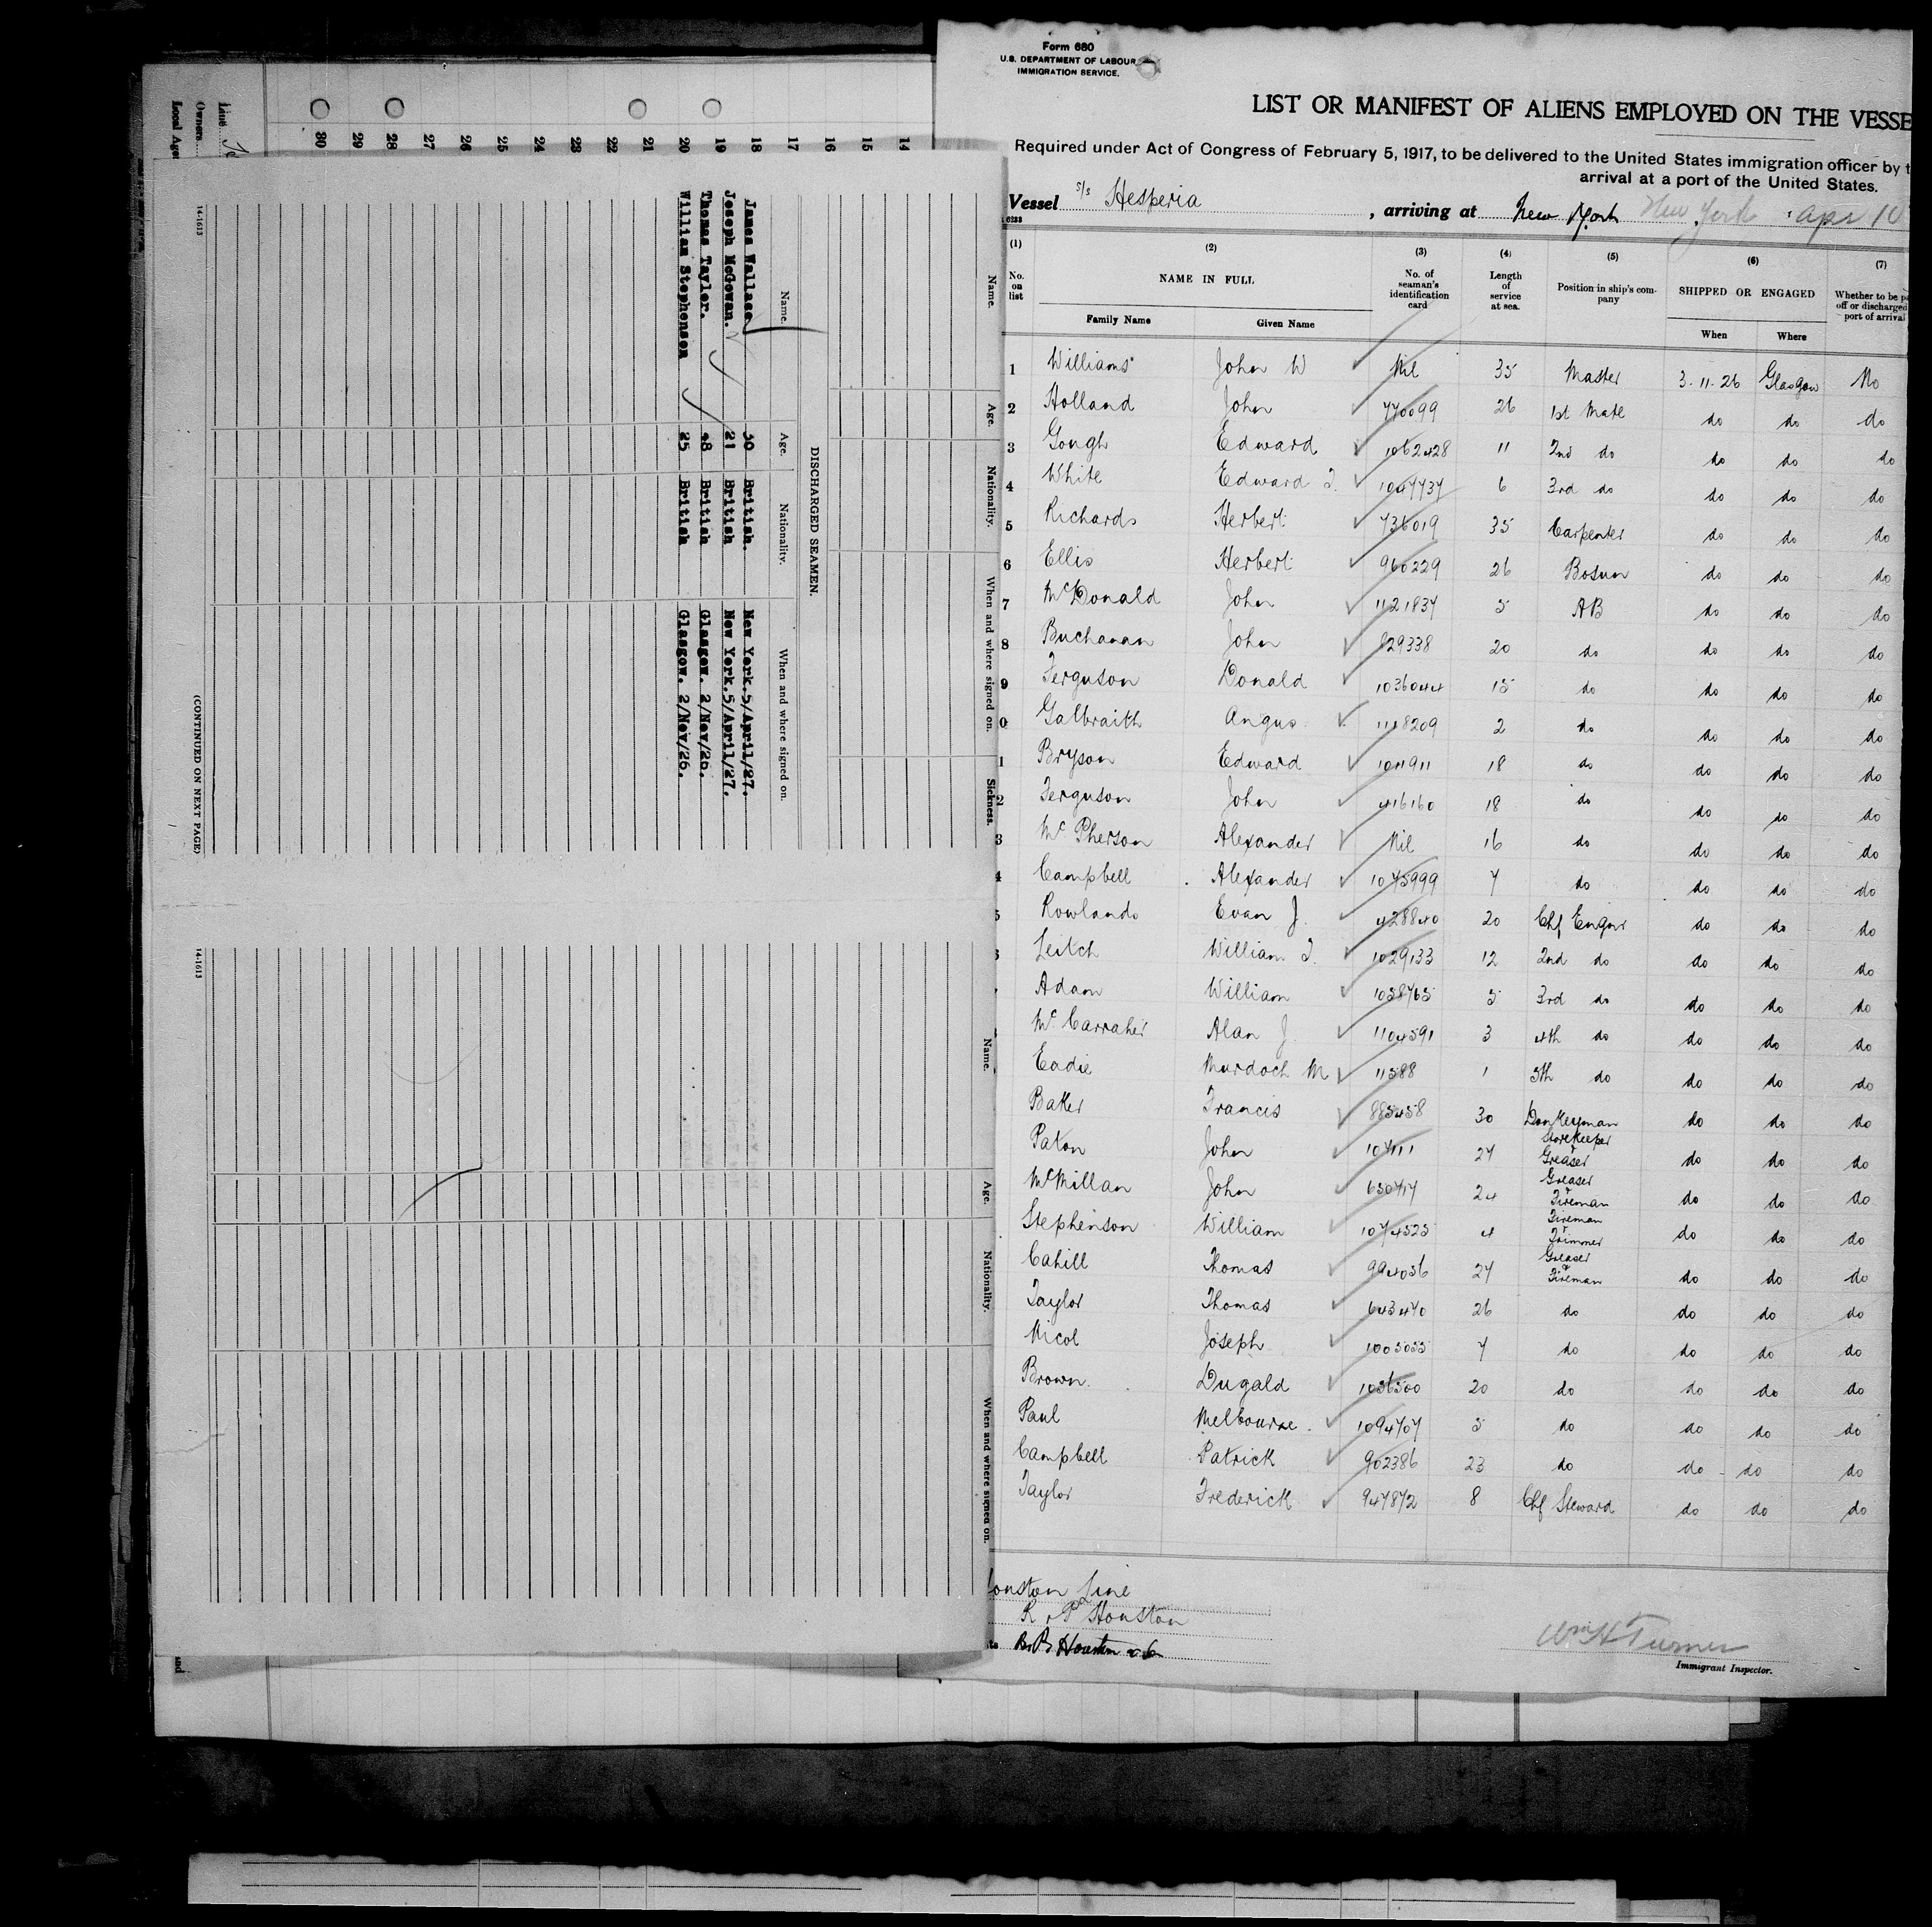 Form 680
U.S. DEPARTMENT OF LABOUR
IMMIGRATION SERVICE.
LIST OR MANIFEST OF ALIENS EMPLOYED ON THE VESSE
Required under Act of Congress of February 5, 1917, to be delivered to the United States immigration officer by t
arrival at a port of the United States.
Vessel s/s Hesperia , arriving at New York New York Apr 10
(1) (2) (3) (4) (5) (6) (7)
No. on list NAME IN FULL No. of seaman's identification card Length of service at sea. Position in ship's company SHIPPED OR ENGAGED Whether to be p off or discharged port of arrival
Family Name Given Name When Where
1 Williams John W Nil 35 Master 3.11.26 Glasgow No
2 Holland John 770099 26 1st Mate do do do
3 Gough Edward 1062428 11 2nd do do do do
4 White Edward J. 1047737 6 3rd do do do do
5 Richards Herbert 736019 35 Carpenter do do do
6 Ellis Herbert 960229 26 Bosun do do do
7 McDonald John 1121837 5 AB do do do
8 Buchanan John 829338 20 do do do do
9 Ferguson Donald 1036044 15 do do do do
0 Galbraith Angus 1118209 2 do do do do
1 Bryson Edward 1011911 18 do do do do
2 Ferguson John 416160 18 do do do do
3 McPherson Alexander Nil 16 do do do do
4 Campbell Alexander 1075999 7 do do do do
5 Rowlands Evan J. 428840 20 Chf Engnr do do do
Leitch William J. 1029133 12 2nd do do do do
Adam William 1058765 5 3rd do do do do
McCarraher Alan J 1104591 3 4th do do do do
Eadie Murdoch M 11588 1 5th do do do do
Baker Francis 885458 30 Donkeyman do do do
Paton John 107111 27 Storekeeper & Greaser do do do
McMillan John 650717 24 Greaser & Fireman do do do
Stephenson William 1074525 4 Fireman & Trimmer do do do
Cahill Thomas 994056 27 Greaser & Fireman do do do
Taylor Thomas 643470 26 do do do do
Nicol Joseph 1005055 7 do do do do
Brown Dugald 1056500 20 do do do do
Paul Melbourne 1094707 5 do do do do
Campbell Patrick 902386 23 do do do do
Taylor Frederick 947872 8 Chf Steward do do do
ouston Line
R. P. Houston
R. P. Houston & Co
Wm H Turner
Immigrant Inspector.
Line
Owners
Local Age
30 29 28 27 26 25 24 23 22 21 20 19 18 17 16 15 14
Name. Age. Nationality. When and where signed on. Sickness.
DISCHARGED SEAMEN.
Name. Age. Nationality. When and where signed on.
James Wallace 30 British. New York. 5/April/27.
Joseph McGowan. 21 British New York. 5/April/27.
Thomas Tayler. 48 British Glasgow. 2/Nov/26.
William Stephenson 25 British Glasgow. 2/Nov/26.
14-1613
(CONTINUED ON NEXT PAGE)
Name. Age. Nationality. When and where signed on.
14-1613